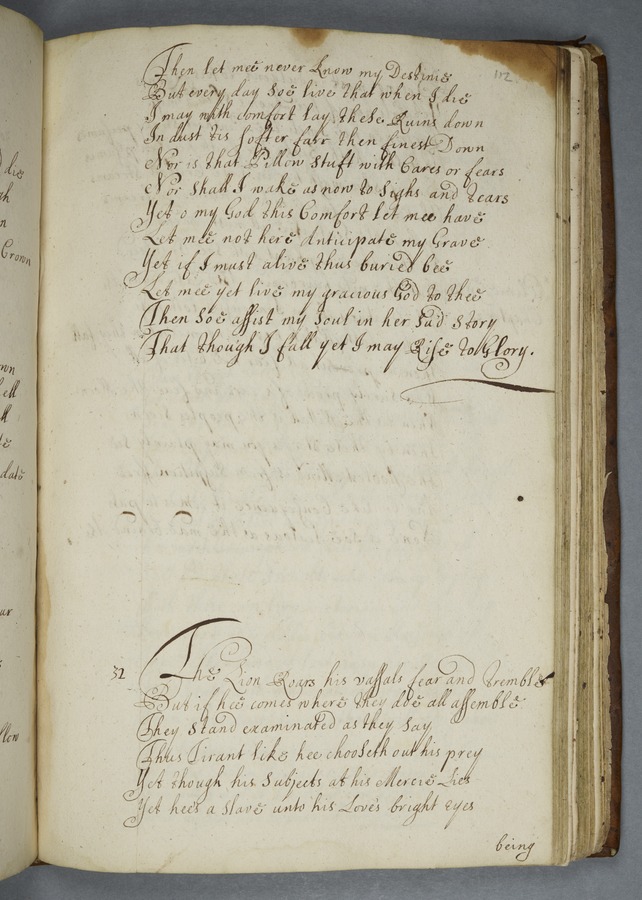 112
Then let mee never know my Destinie
But every day soe live that when I die
I may with comfort lay these Ruins down
In dust tis softer farr then finest Down
Nor is that Pillow Stuft with Cares or fears
Nor Shall I wake as now to Sighs and tears
Yet o my God this Comfort let mee have
Let mee not here Anticipate my Grave
Yet if I must alive thus buried bee
Let mee yet live my gracious God to thee
Then soe assist my Soul in her Sad Story
That though I fall yet I may Rise to Glory.
32 The Lion Roars his vassals fear and tremble
But if hee comes where they doe all assemble
They Stand examinated as they say
Thus Tirant like hee chooseth out his prey
Yet though his Subjects at his Mercie Lies
Yet hee's a Slave unto his Love's bright eyes
being
die
Crown
ell
date